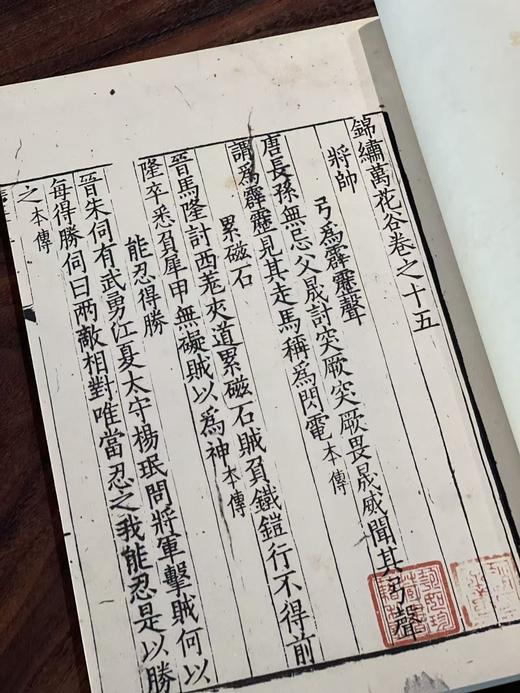 錦繡萬花谷卷之十五
將帥
弓爲霹靂聲
唐長孫無忌父晟討突厥突厥畏晟威聞其弓聲
謂爲霹靂見其走馬稱爲閃電本傳
累磁石
晉馬隆討西羌夾道累磁石賊負鐵鎧行不得前
隆卒悉負犀甲無礙賊以爲神本傳
能忍得勝
晉朱伺有武勇江夏太守楊珉問將軍擊賊何以
每得勝伺曰兩敵相對唯當忍之我能忍是以勝
之本傳